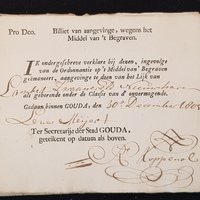 Pro Deo. Billiet van aangevinge, wegens het
Middel van 't Begraven.
IK ondergeschreve verklare bij deezen, ingevolge
van de Ordonnantie op 't Middel van 't Begraven
geëmaneert, aangevinge te doen van het Lijk van
als gehorende onder de Classis van d' onvermogende.
Gedaan binnen GOUDA, den 30e December
Ter Secretarije der Stad GOUDA,
geteikent op datum als boven.